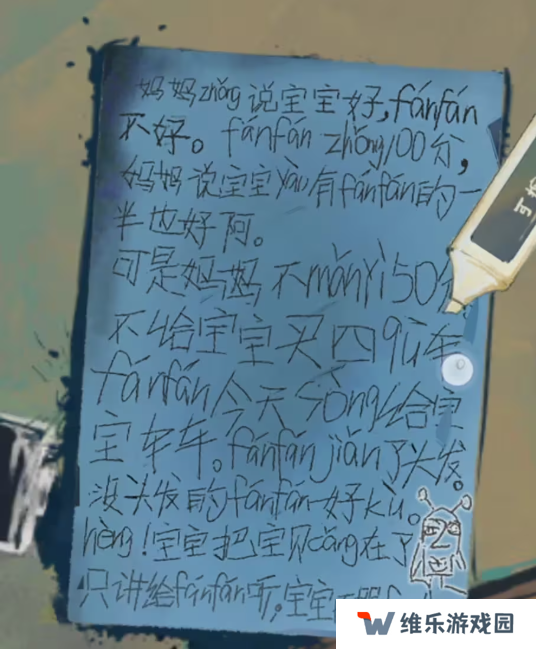 妈妈zhǒng说宝宝好,fánfán
不好。fánfán zhǒng100分,
妈妈说宝宝yào有fánfán的一
半也好阿。
可是妈妈不mǎnyì50分
不给宝宝买四qū车
fánfán今天sòng给宝
宝车车。fánfán jiǎn了头发。
没头发的fánfán好kù。
hèng!宝宝把宝贝cáng在了
只讲给fánfán听。宝宝
维乐游戏园